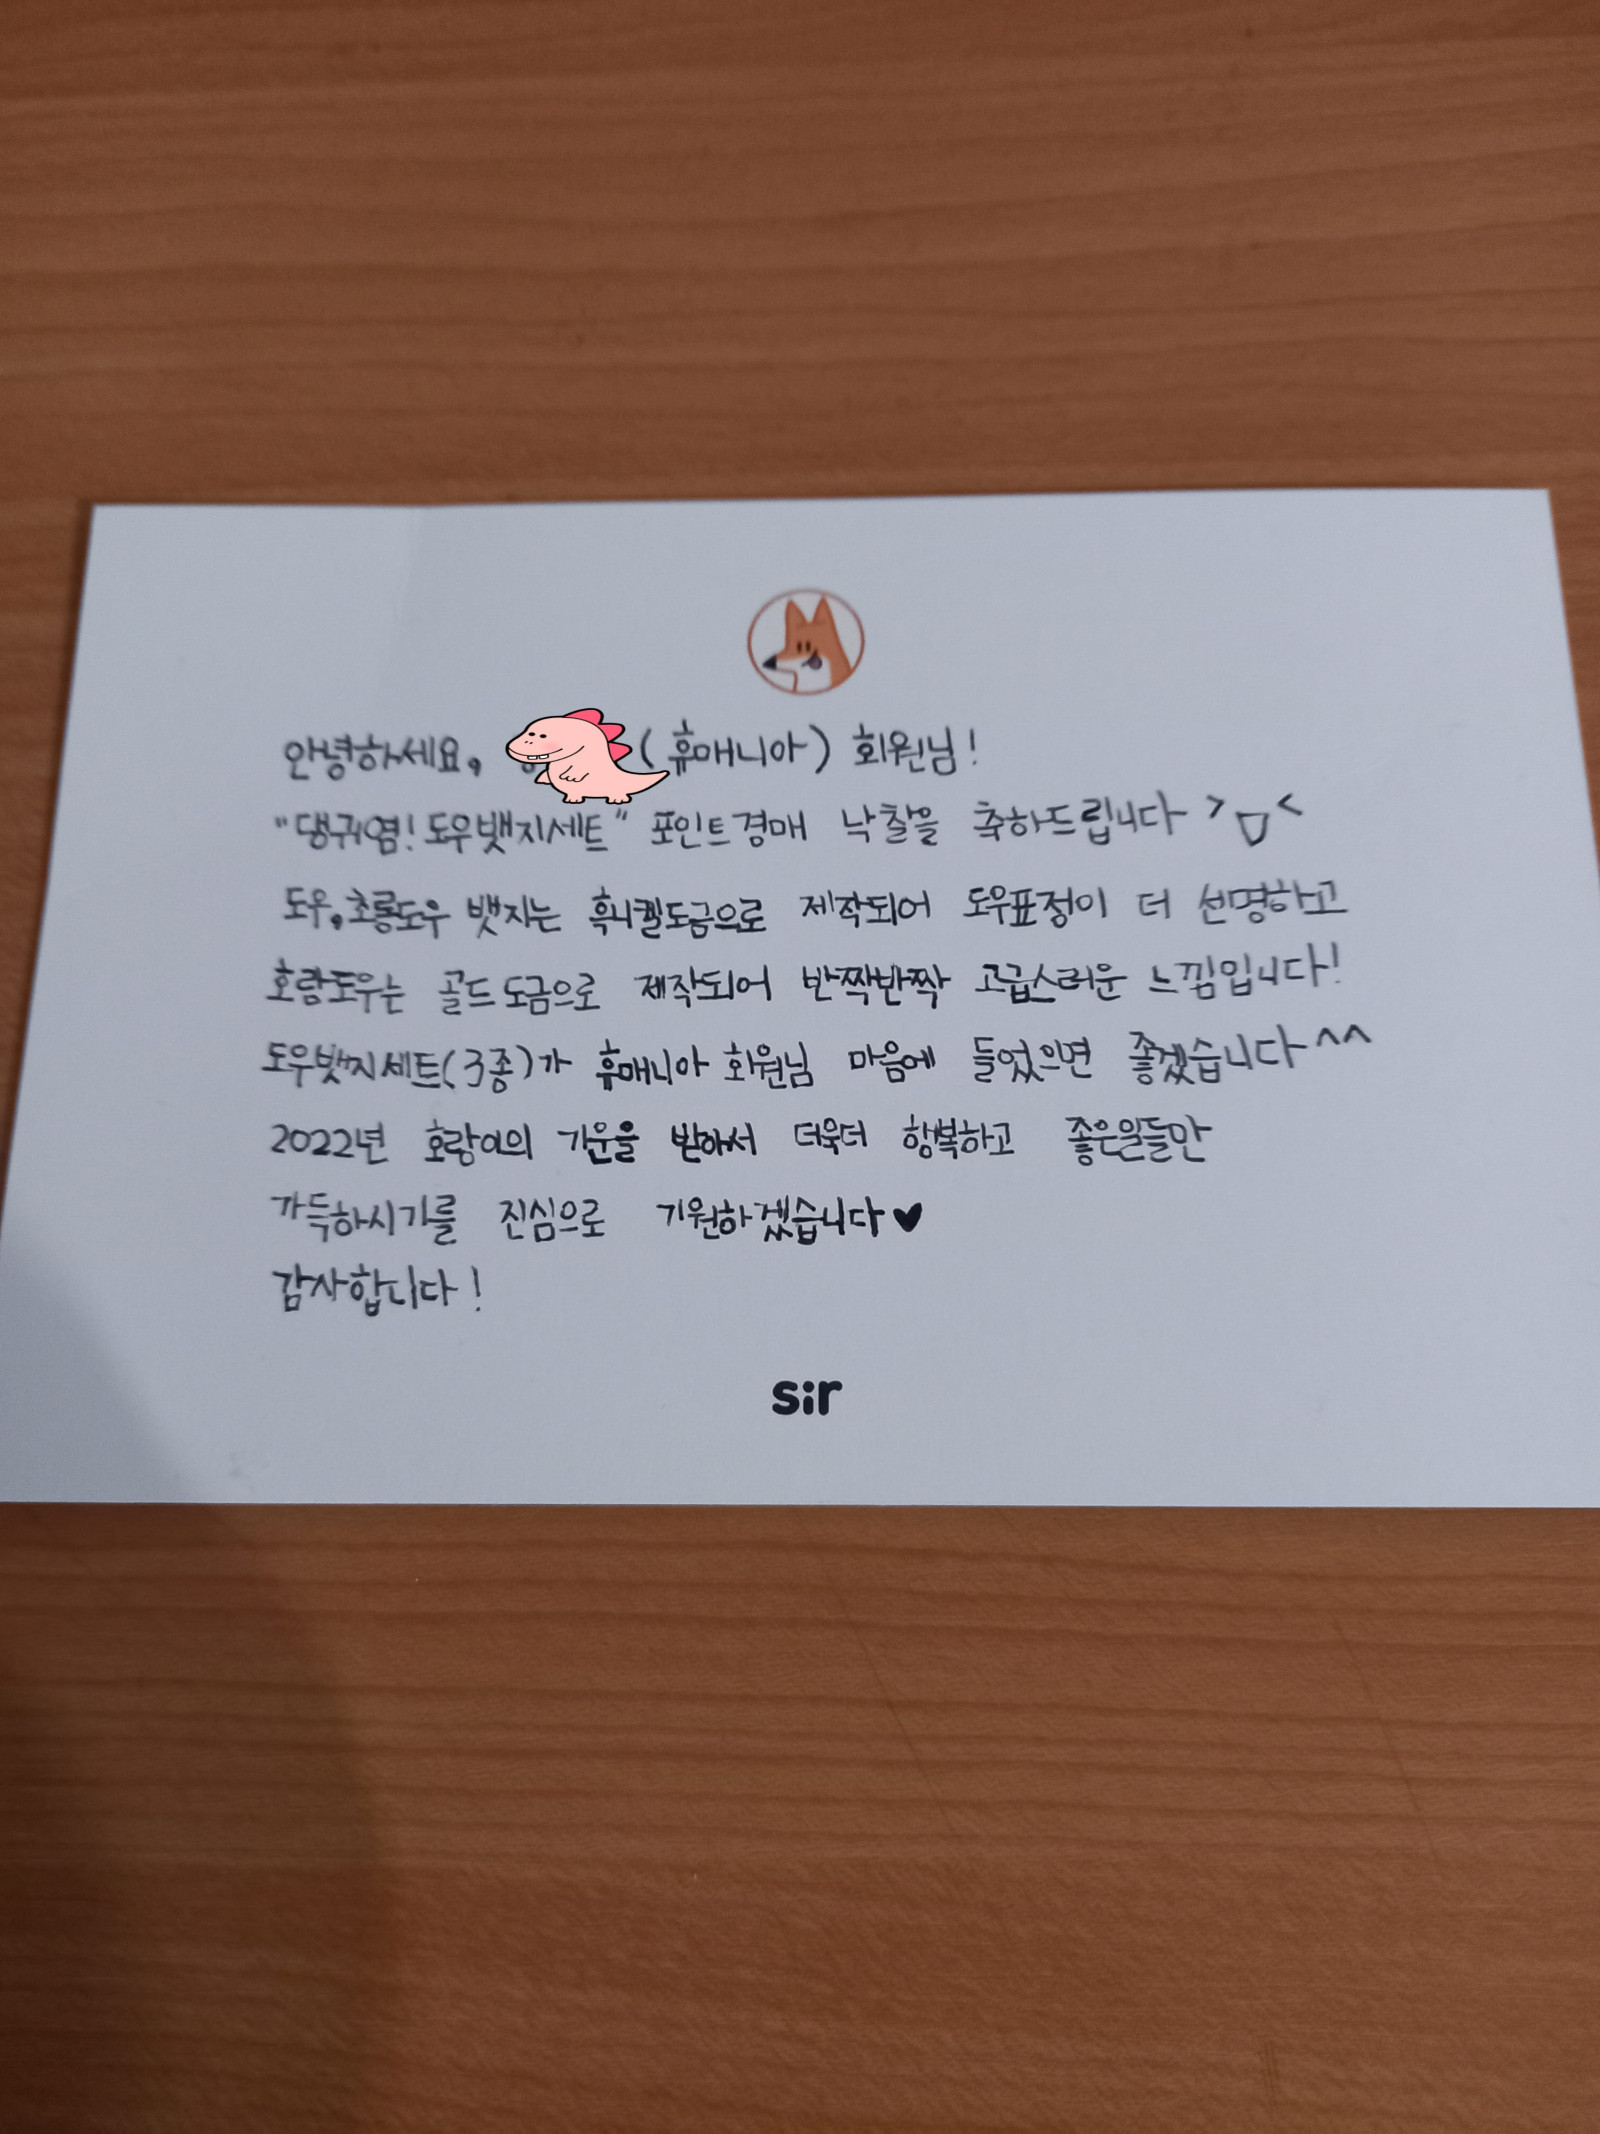 안녕하세요, (휴매니아) 회원님!
"댕귀염! 도우뱃지세트" 포인트경매 낙찰을 축하드립니다 >ㅁ<
도우,초롱도우 뱃지는 흑니켈도금으로 제작되어 도우표정이 더 선명하고
호랑도우는 골드도금으로 제작되어 반짝반짝 고급스러운 느낌입니다!
도우뱃지세트(3종)가 휴매니아 회원님 마음에 들었으면 좋겠습니다^^
2022년 호랑이의 기운을 받아서 더욱더 행복하고 좋은일들만
가득하시기를 진심으로 기원하겠습니다♥
감사합니다!
sir